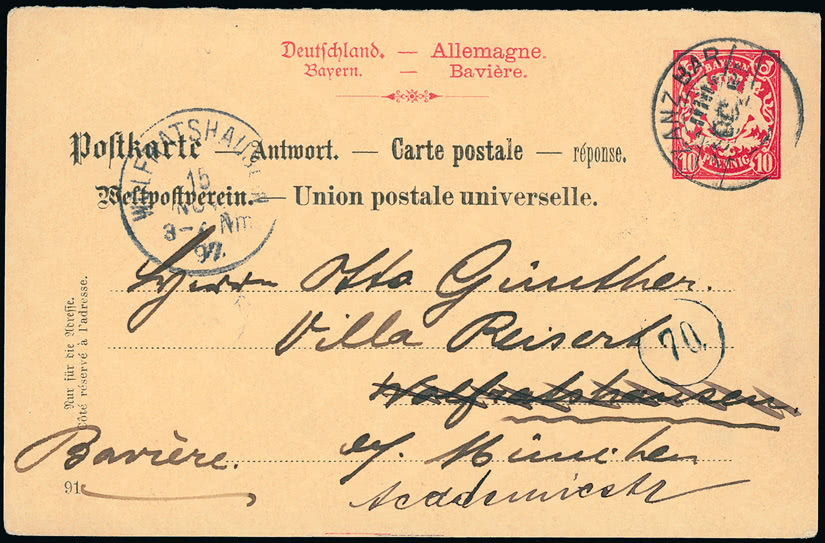 Deutschland. — Allemagne.
Bayern. — Bavière.
BAYERN
10 PFENNIG 10
WOLFRATSHAUSEN
15
NOV
Nm
97
Postkarte — Antwort. — Carte postale — réponse.
Weltpostverein. — Union postale universelle.
Herrn Otto Günther.
Villa Reisert
70.
Wolfratshausen.
b/ München
Bavière.
Academiestr
Nur für die Adresse.
Côté réservé à l'adresse.
91